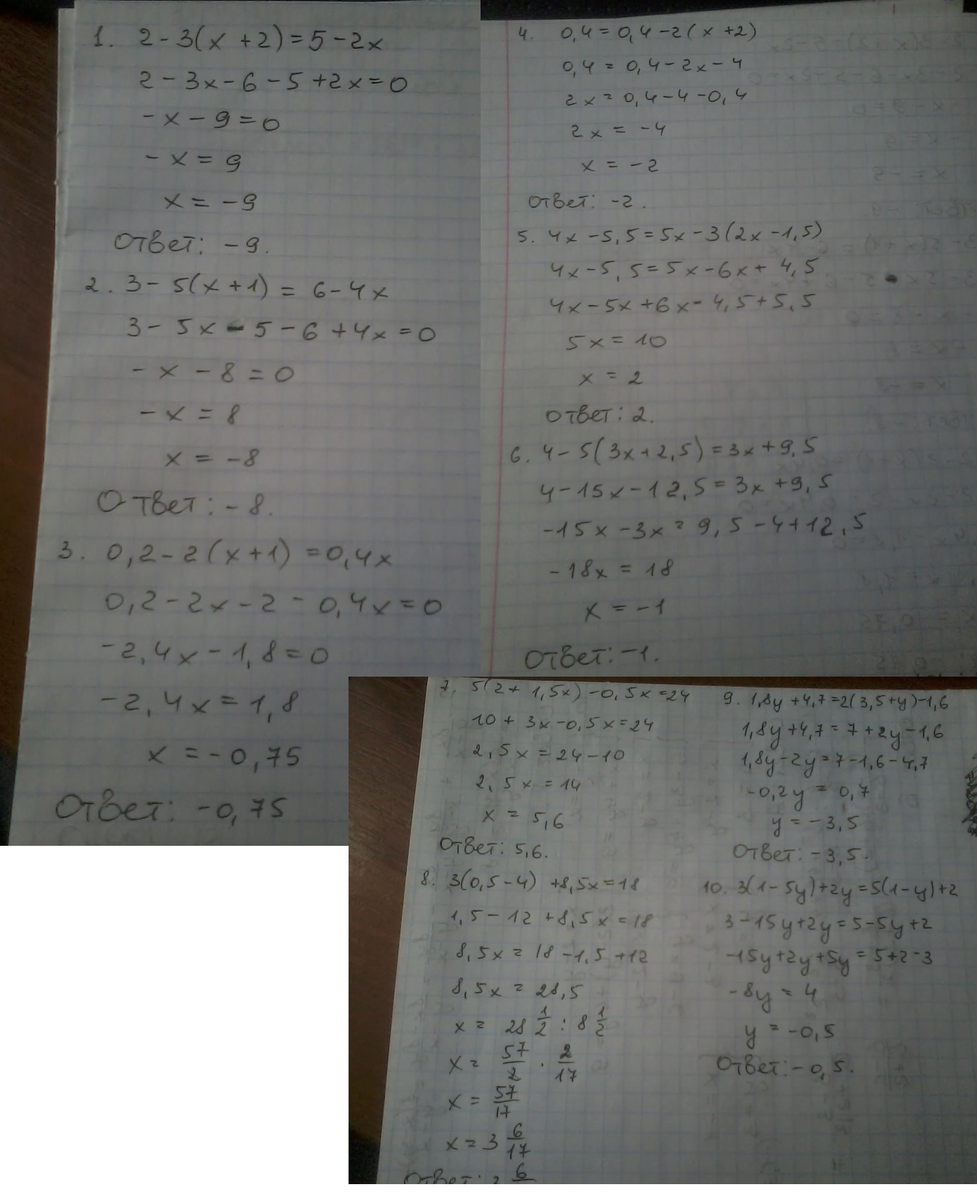 1. 2 - 3(x + 2) = 5 - 2x
2 - 3x - 6 - 5 + 2x = 0
- x - 9 = 0
- x = 9
x = -9
Ответ: -9.
2. 3 - 5(x + 1) = 6 - 4x
3 - 5x - 5 - 6 + 4x = 0
- x - 8 = 0
- x = 8
x = -8
Ответ: -8.
3. 0,2 - 2(x + 1) = 0,4x
0,2 - 2x - 2 - 0,4x = 0
-2,4x - 1,8 = 0
-2,4x = 1,8
x = -0,75
Ответ: -0,75
4. 0,4 = 0,4 - 2(x + 2)
0,4 = 0,4 - 2x - 4
2x = 0,4 - 4 - 0,4
2x = -4
x = -2
Ответ: -2.
5. 4x - 5,5 = 5x - 3(2x - 1,5)
4x - 5,5 = 5x - 6x + 4,5
4x - 5x + 6x = 4,5 + 5,5
5x = 10
x = 2
Ответ: 2.
6. 4 - 5(3x + 2,5) = 3x + 9,5
4 - 15x - 12,5 = 3x + 9,5
-15x - 3x = 9,5 - 4 + 12,5
-18x = 18
x = -1
Ответ: -1.
7. 5(2 + 1,5x) - 0,5x = 24
10 + 3x - 0,5x = 24
2,5x = 24 - 10
2,5x = 14
x = 5,6
Ответ: 5,6.
8. 3(0,5 - 4) + 8,5x = 18
1,5 - 12 + 8,5x = 18
8,5x = 18 - 1,5 + 12
8,5x = 28,5
x = 28 1/2 : 8 1/2
x = 57/2 · 2/17
x = 57/17
x = 3 6/17
Ответ: 6
9. 1,8y + 4,7 = 2(3,5 + y) - 1,6
1,8y + 4,7 = 7 + 2y - 1,6
1,8y - 2y = 7 - 1,6 - 4,7
-0,2y = 0,7
y = -3,5
Ответ: -3,5.
10. 3(1 - 5y) + 2y = 5(1 - y) + 2
3 - 15y + 2y = 5 - 5y + 2
-15y + 2y + 5y = 5 + 2 - 3
-8y = 4
y = -0,5
Ответ: -0,5.